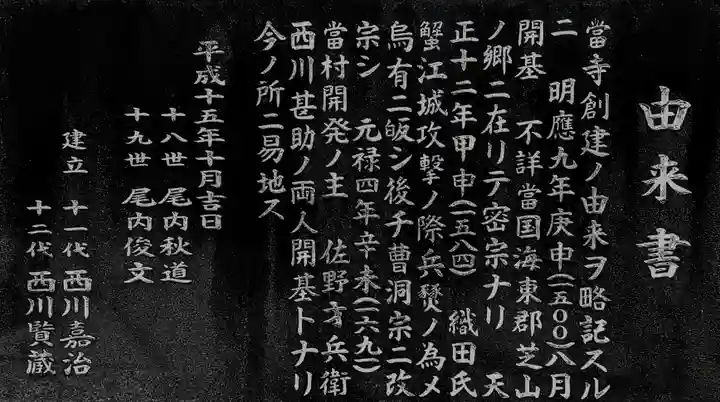 由来書
當寺創建ノ由来ヲ略記スル
二 明應九年庚申(一五〇〇)八月
開基 不詳當国海東郡芝山
ノ郷ニ在リテ密宗ナリ 天
正十二年甲申(一五八四) 織田氏
蟹江城攻撃ノ際兵燹ノ為メ
烏有ニ皈シ後チ曹洞宗ニ改
宗シ 元禄四年辛未(一六九一)
當村開発ノ主 佐野才兵衛
西川甚助ノ両人開基トナリ
今ノ所ニ易地ス
平成十五年十月吉日
十八世 尾内秋道
十九世 尾内俊文
建立 十一代 西川嘉治
十二代 西川賢蔵